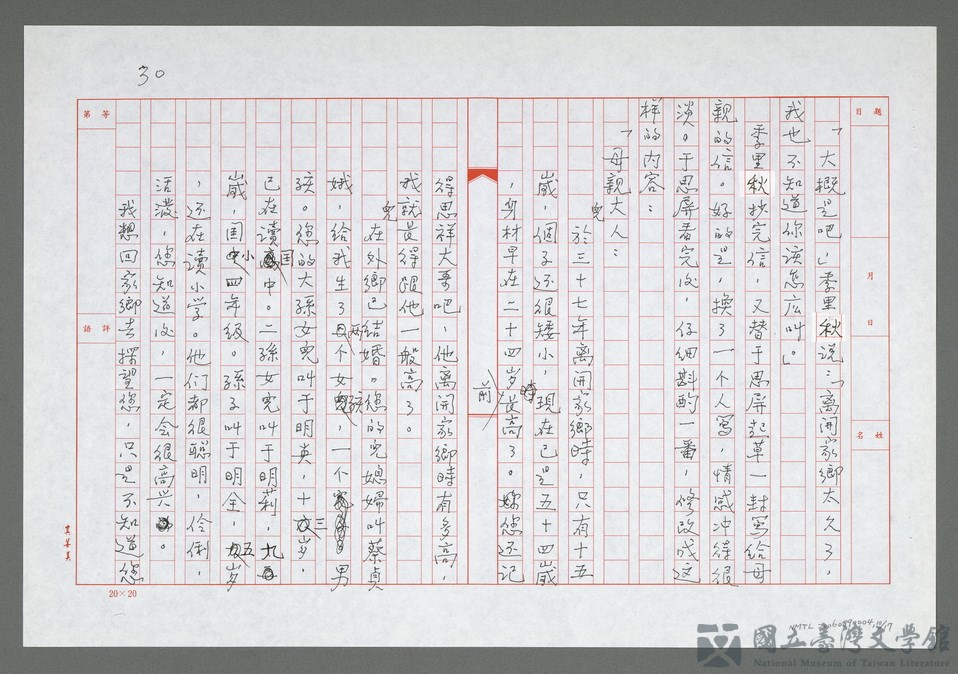 30
題目
月
日
姓名
等第
評語
「大概是吧」季里秋說：「离開家鄉太久了，
我也不知道你該怎庅叫。」
季里秋抄完信，又替于思屏起草一封寫給母
親的信。好的是，換了一个人寫，情感冲得很
淡。于思屏看完后，仔細斟酌一番，修改成这
样的內容：
「母親大人：
兒於三十七年离開家鄉時，只有十五
歲，個子还很矮小，現在已是五十四歲
，身材早在二十四岁時最高了。您还记
前
得思祥大哥吧，他离開家鄉時有多高，
我就長得跟他一般高了。
兒在外鄉已結婚。您的兒媳婦叫蔡貞
娥，給我生了两个女孩，一个男
孩。您的大孫女兒叫于明英，十三岁，
已在讀国中。二孫女兒叫于明莉，九
歲，国小四年级。孫子叫于明全，五岁
，还在读小学。他们都很聪明，伶俐，
活潑，您知道后，一定会很高兴。
我想回家鄉去探望您，只是不知道您
20×20
國立臺灣文學館
National Museum of Taiwan Literature